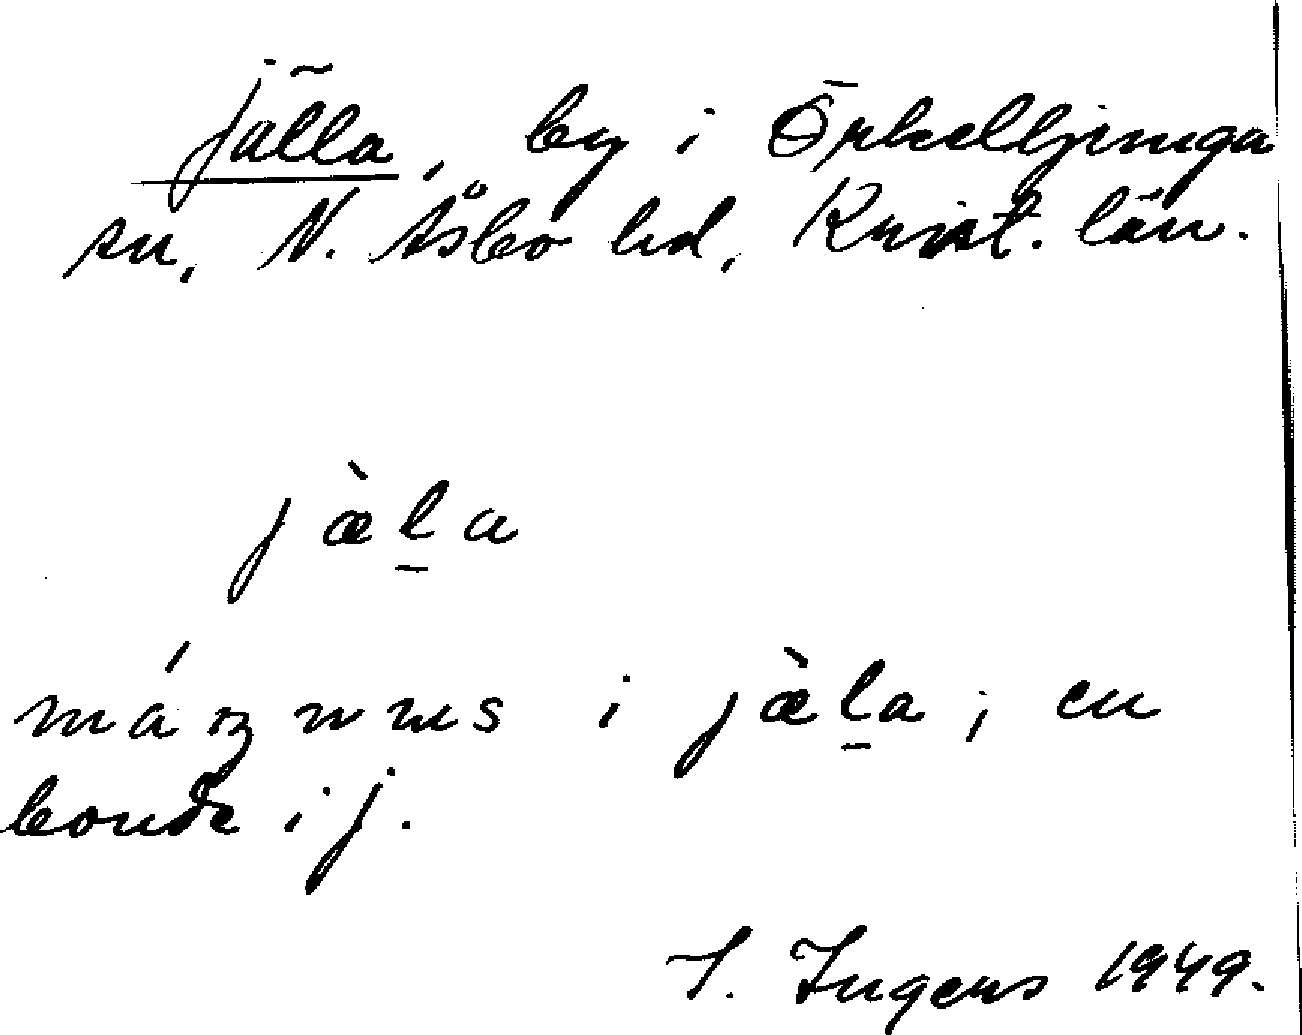 Jälla, by i Örkelljunga
sn, N. Åsbo hd, Krist. län.
jæ̀l̠a
máŋnus i jæ̀l̠a; en
bonde i j.
I. Ingers 1949.